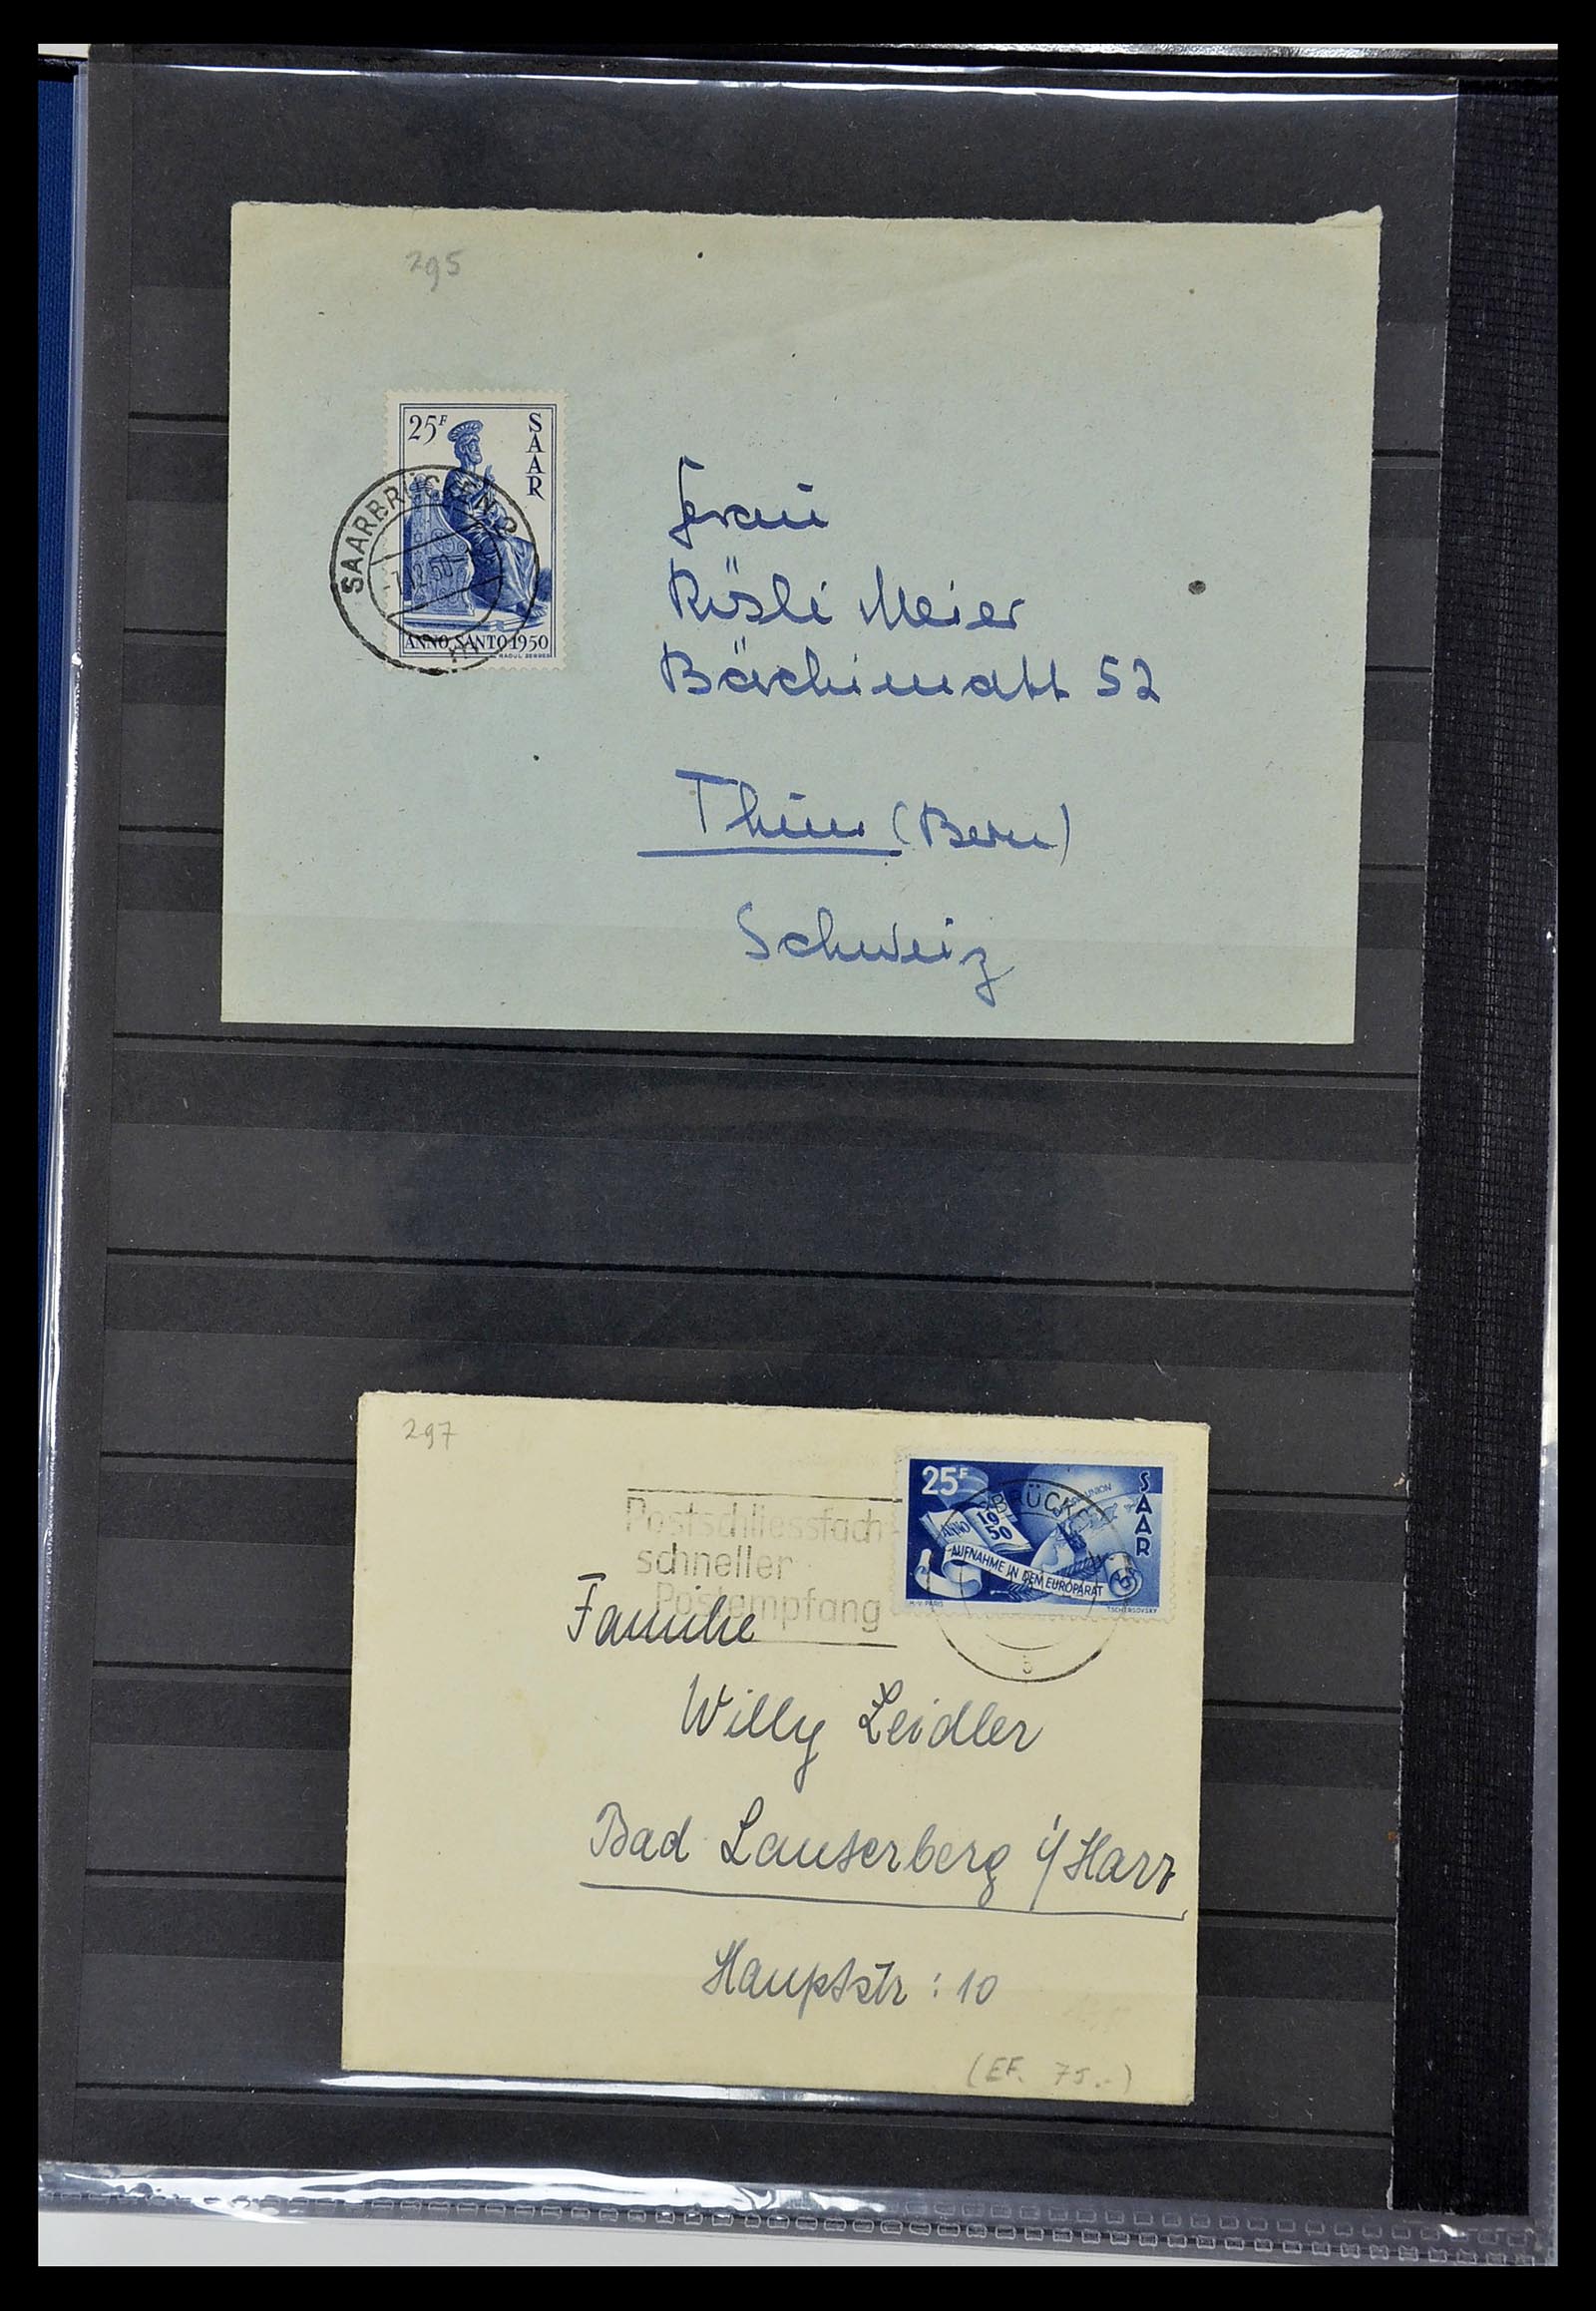 295
25F
SAAR
SAARBRÜCKEN 2
12.50
ANNO SANTO 1950
RAOUL SERRES
Frau
Rösli Meier
Bächimatt 52
Thun (Bern)
Schweiz
297
25F
SAAR
ANNO 1950
AUFNAHME IN DEN EUROPARAT
TSCHERSOVSKY
BRÜCK
Postschliessfach-
schneller
Postempfang
Familie
Willy Zeidler
Bad Lauterberg i/Harz
Hauptstr: 10
(EF. 75.-)